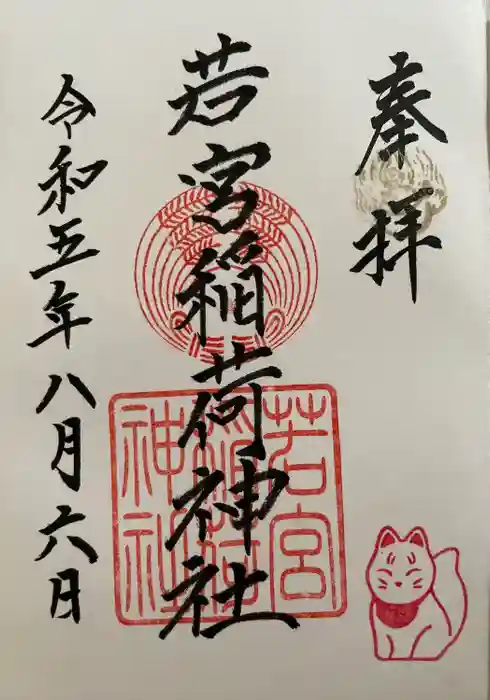 奉拝
若宮稲荷神社
令和五年八月六日
若宮
稲荷
神社